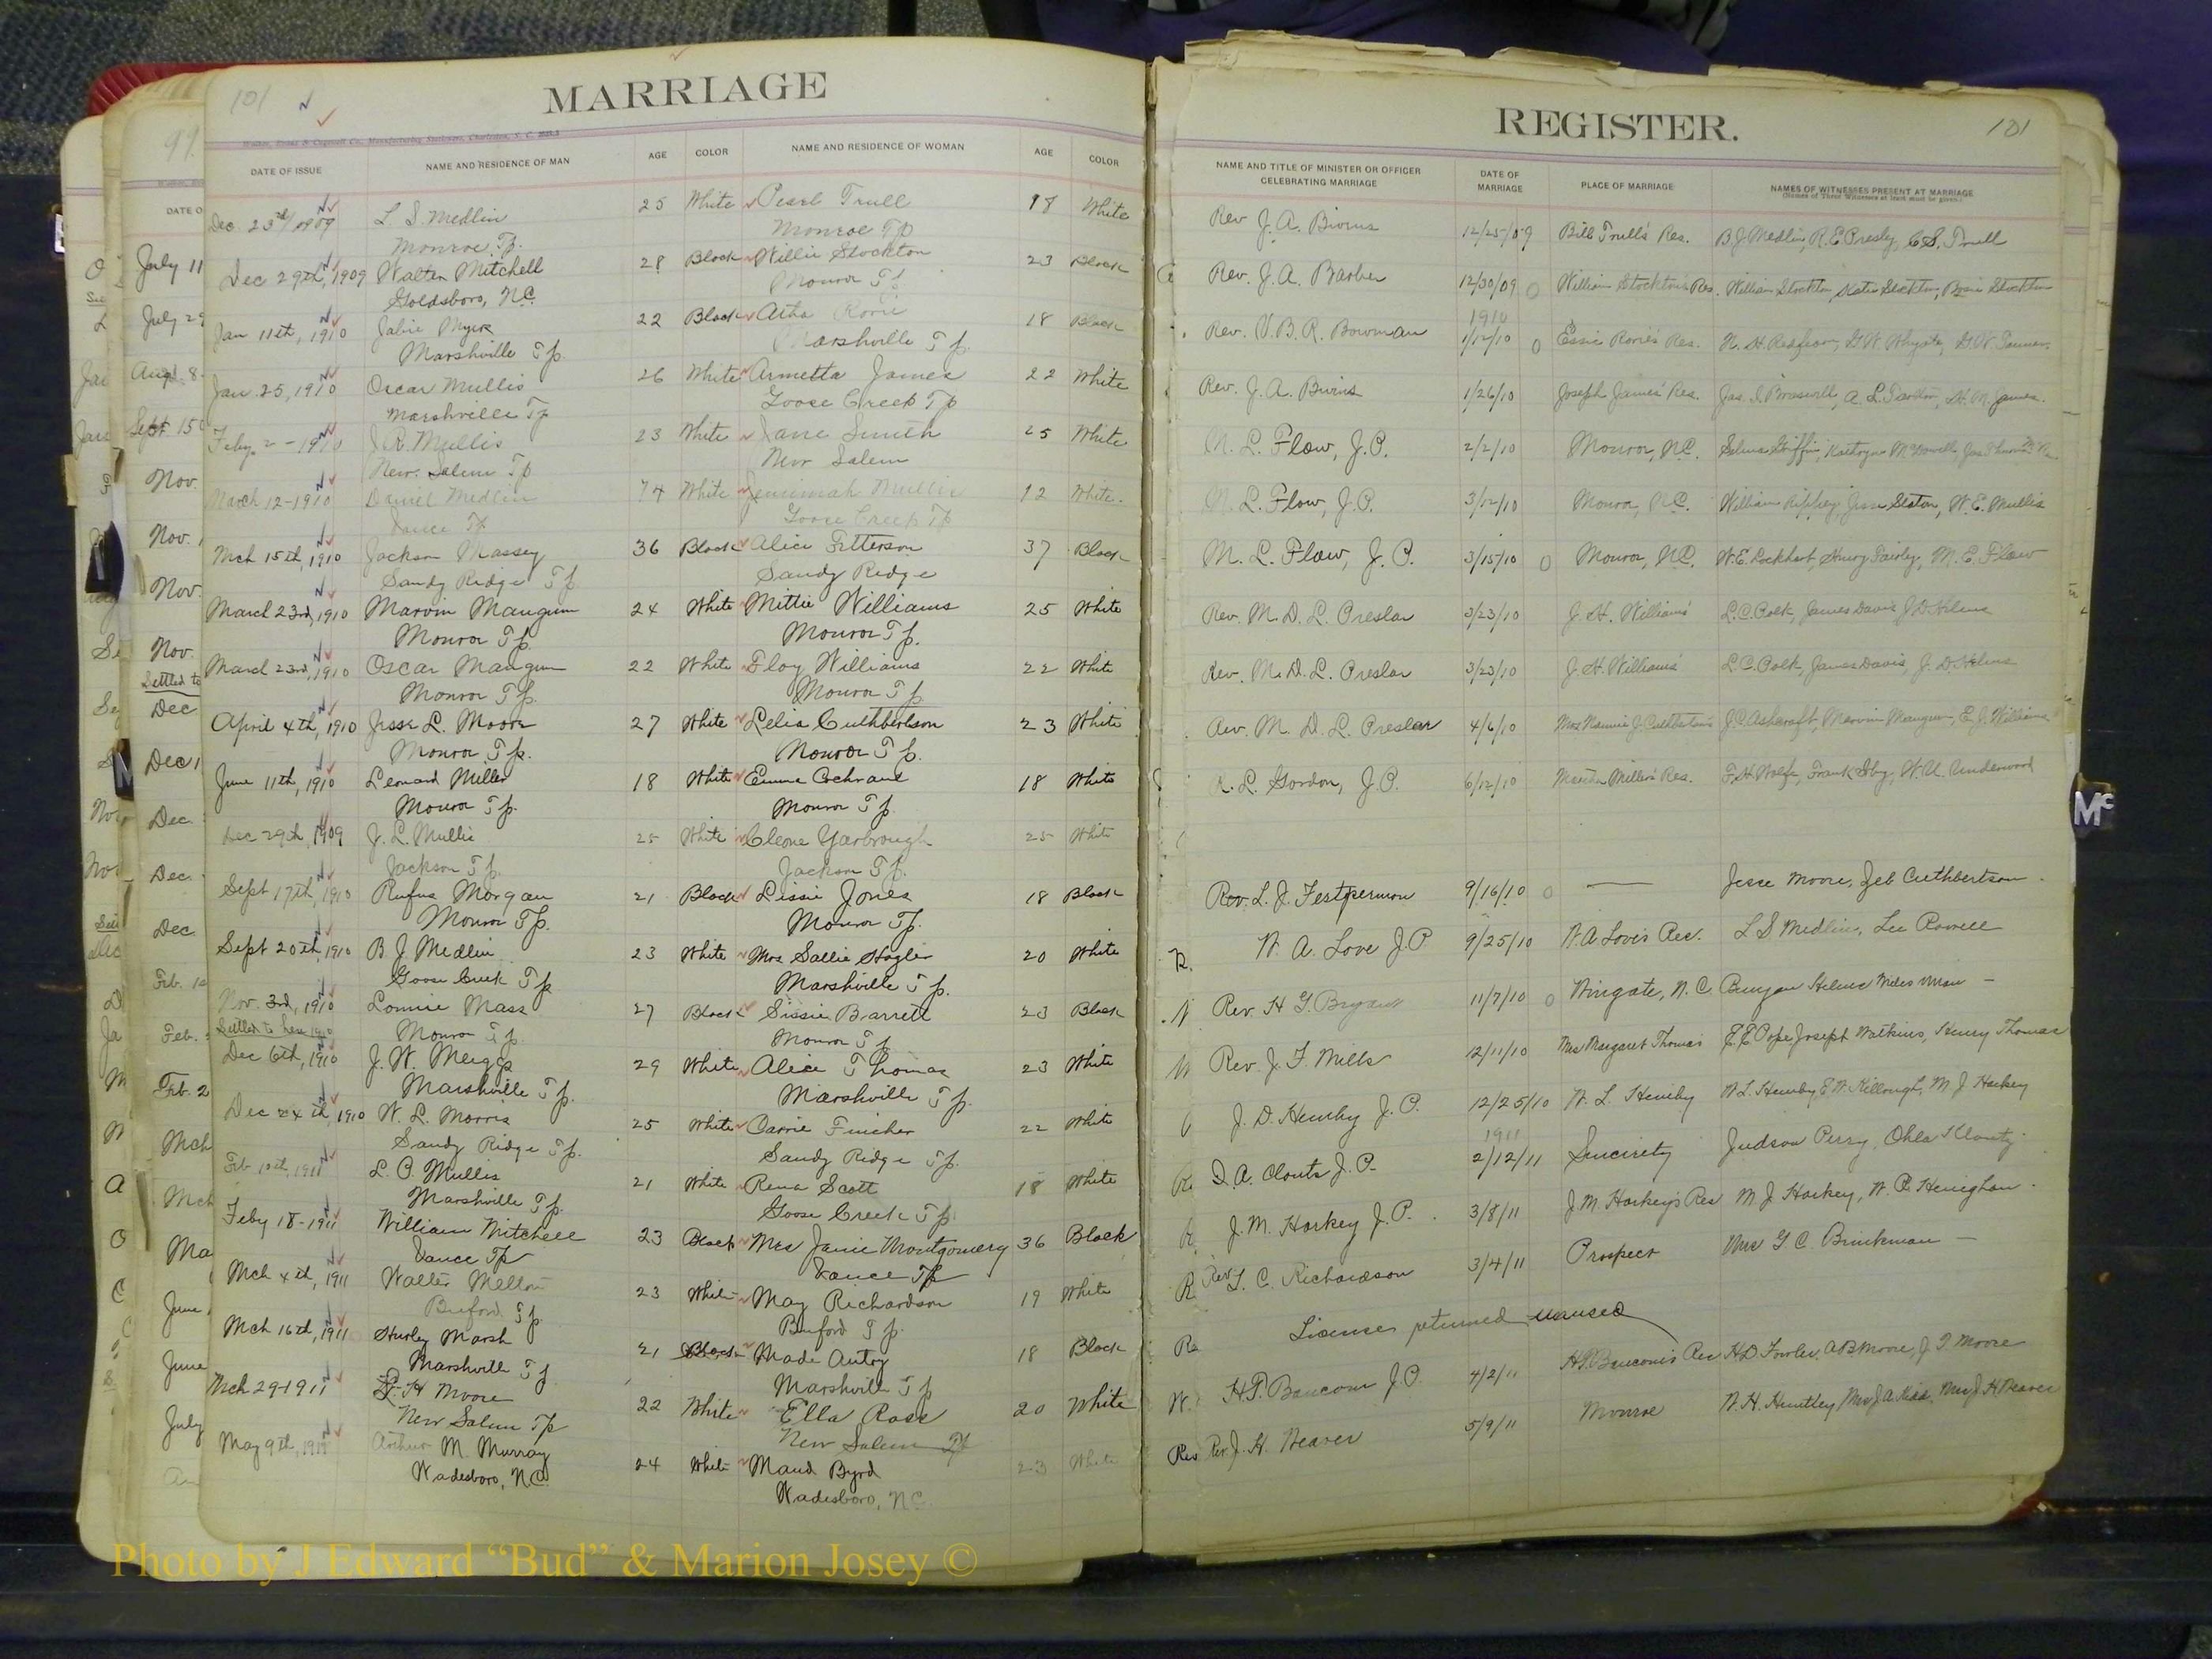 101
MARRIAGE
DATE OF ISSUE NAME AND RESIDENCE OF MAN AGE COLOR NAME AND RESIDENCE OF WOMAN AGE COLOR
Dec. 23rd/1909 L. S. Medlin 25 White Pearl Trull 18 White
Monroe Tp. Monroe Tp
Dec 29th, 1909 Walter Mitchell 28 Black Willie Stockton 23 Black
Goldsboro, N.C. Monroe Tp
Jan 11th, 1910 Myers 22 Black Rorie 18 Black
Marshville Tp. Marshville Tp.
Jan. 25, 1910 Oscar Mullis 26 White Armetta James 22 White
Marshville Tp Goose Creek Tp
Feby. 2-1910 J. R. Mullis 23 White Jane Smith 25 White
New Salem Tp New Salem
March 12-1910 Daniel Medlin 74 White Mullis White
Vance Tp Goose Creek Tp
Mch 15th, 1910 Jackson Massey 36 Black Alice 37 Black
Sandy Ridge Tp Sandy Ridge
March 23rd, 1910 Marvin Mangum 24 White Mittie Williams 25 White
Monroe Tp. Monroe Tp.
March 23rd, 1910 Oscar Mangum 22 White Floy Williams 22 White
Monroe Tp. Monroe Tp
April 4th, 1910 Jesse L. Moore 27 White Lelia Cuthbertson 23 White
Monroe Tp. Monroe Tp.
June 11th, 1910 Leonard Miller 18 White Emma Cochrane 18 White
Monroe Tp. Monroe Tp.
Dec 29th, 1909 J. L. Mullis 25 White Cleone Yarbrough 25 White
Jackson Tp. Jackson Tp.
Sept 17th, 1910 Rufus Morgan 21 Black Lissie Jones 18 Black
Monroe Tp. Monroe Tp.
Sept 20th, 1910 B J Medlin 23 White Mrs Sallie Hagler 20 White
Goose Creek Tp Marshville Tp.
Nov. 3rd, 1910 Lonnie Mass 27 Black Sissie Barrett 23 Black
Settled to here 1910 Monroe Tp. Monroe Tp
Dec 6th, 1910 J. W. Meiggs 29 White Alice Thomas 23 White
Marshville Tp. Marshville Tp.
Dec 24th, 1910 W. L. Morris 25 White Carrie Fincher 22 White
Sandy Ridge Tp. Sandy Ridge Tp.
Feb 10th, 1911 L. C. Mullis 21 White Rena Scott 18 White
Marshville Tp. Goose Creek Tp
Feby 18-1911 William Mitchell 23 Black Mrs Janie Montgomery 36 Black
Vance Tp Vance Tp
Mch 4th, 1911 Walter Melton 23 White May Richardson 19 White
Buford Tp Buford Tp.
Mch 16th, 1911 Hurley Marsh 21 Black Made Autry 18 Black
Marshville Tp Marshville Tp
Mch 29-1911 H Moore 22 White Ella Rose 20 White
New Salem Tp New Salem Tp
May 9th, 1911 Arthur M. Murray 24 White Maud Byrd 23 White
Wadesboro, N.C. Wadesboro, N.C.
REGISTER.
101
NAME AND TITLE OF MINISTER OR OFFICER CELEBRATING MARRIAGE DATE OF MARRIAGE PLACE OF MARRIAGE NAMES OF WITNESSES PRESENT AT MARRIAGE
(Names of Three Witnesses at least must be given.)
Rev J. A. Bivins 12/25/09 Bill Trull's Res. B. J. Medlin, R. E. Presley, C. S. Trull
Rev. J. A. Barber 12/30/09 William Stockton's Res. William Stockton, Katie Stockton, Stockton
1910
Rev. V. B. R. Bowman 1/12/10 Essie Rorie's Res.
Rev. J. A. Bivins 1/26/10 Joseph James' Res. Jas. I. Braswell, A. L. H. M. James.
M. L. Flow, J.P. 2/2/10 Monroe, N.C. Selma Griffin, Kathryn McDowell
M. L. Flow, J.P. 3/12/10 Monroe, N.C. William Jesse Staton, W. E. Mullis
M. L. Flow, J.P. 3/15/10 Monroe, N.C. W. E. Lockhart, Henry Fairley, M. E. Flow
Rev. M. D. L. Preslar 3/23/10 J. H. Williams' L. C. Polk, James Davis, J. D. Helms
Rev. M. D. L. Preslar 3/23/10 J. H. Williams' L. C. Polk, James Davis, J. D. Helms
Rev. M. D. L. Preslar 4/6/10 Mrs Nannie J. Cuthbertson's J. C. Ashcraft, Marvin Mangum, E. J. Williams
R. L. Gordon, J.P. 6/12/10 Miller's Res. F. H. Wolfe, Frank W. U. Underwood
Rev. L. J. Festperman 9/16/10 — Jesse Moore, Zeb Cuthbertson.
W. A. Love J P 9/25/10 W. A Love's Res. L S Medlin, Lee Rowell
Rev. H G. Bryant 11/7/10 Wingate, N. C. Bunyan Helms
Rev. J. F. Mills 12/11/10 Mrs Margaret Thomas E. E. Pope, Joseph Watkins, Henry Thomas
J. D. Hemby J. P. 12/25/10 W. L. Hemby W L. Hemby, E. W. Killough, M J Harkey
1911
D. A. Clontz J. P. 2/12/11 Sincerity Judson Perry, Ohla Klontz
J. M. Harkey J. P. 3/8/11 J. M. Harkey's Res M J Harkey, W. P. Henighan.
Rev L. C. Richardson 3/4/11 Prospect Mrs G C. Brinkman —
License returned unused
H. P. Baucom J. P. 4/2/11 H. P. Baucom's Res H D Fowler, A B Moore, J T Moore
Rev. J. H. Weaver 5/9/11 Monroe W. H. Huntley, Mrs J. A. Mrs J. H Weaver
99
DATE O
July 11
July 29
Aug. 8
Sept 15
Nov.
Nov.
Nov.
Nov.
Settled to
Dec
Dec 1
Dec.
Dec.
Dec
Feb. 1
Feb.
Feb. 2
Mch
Mch
Ma
June
June
July
Mc
Photo by J Edward “Bud” & Marion Josey ©